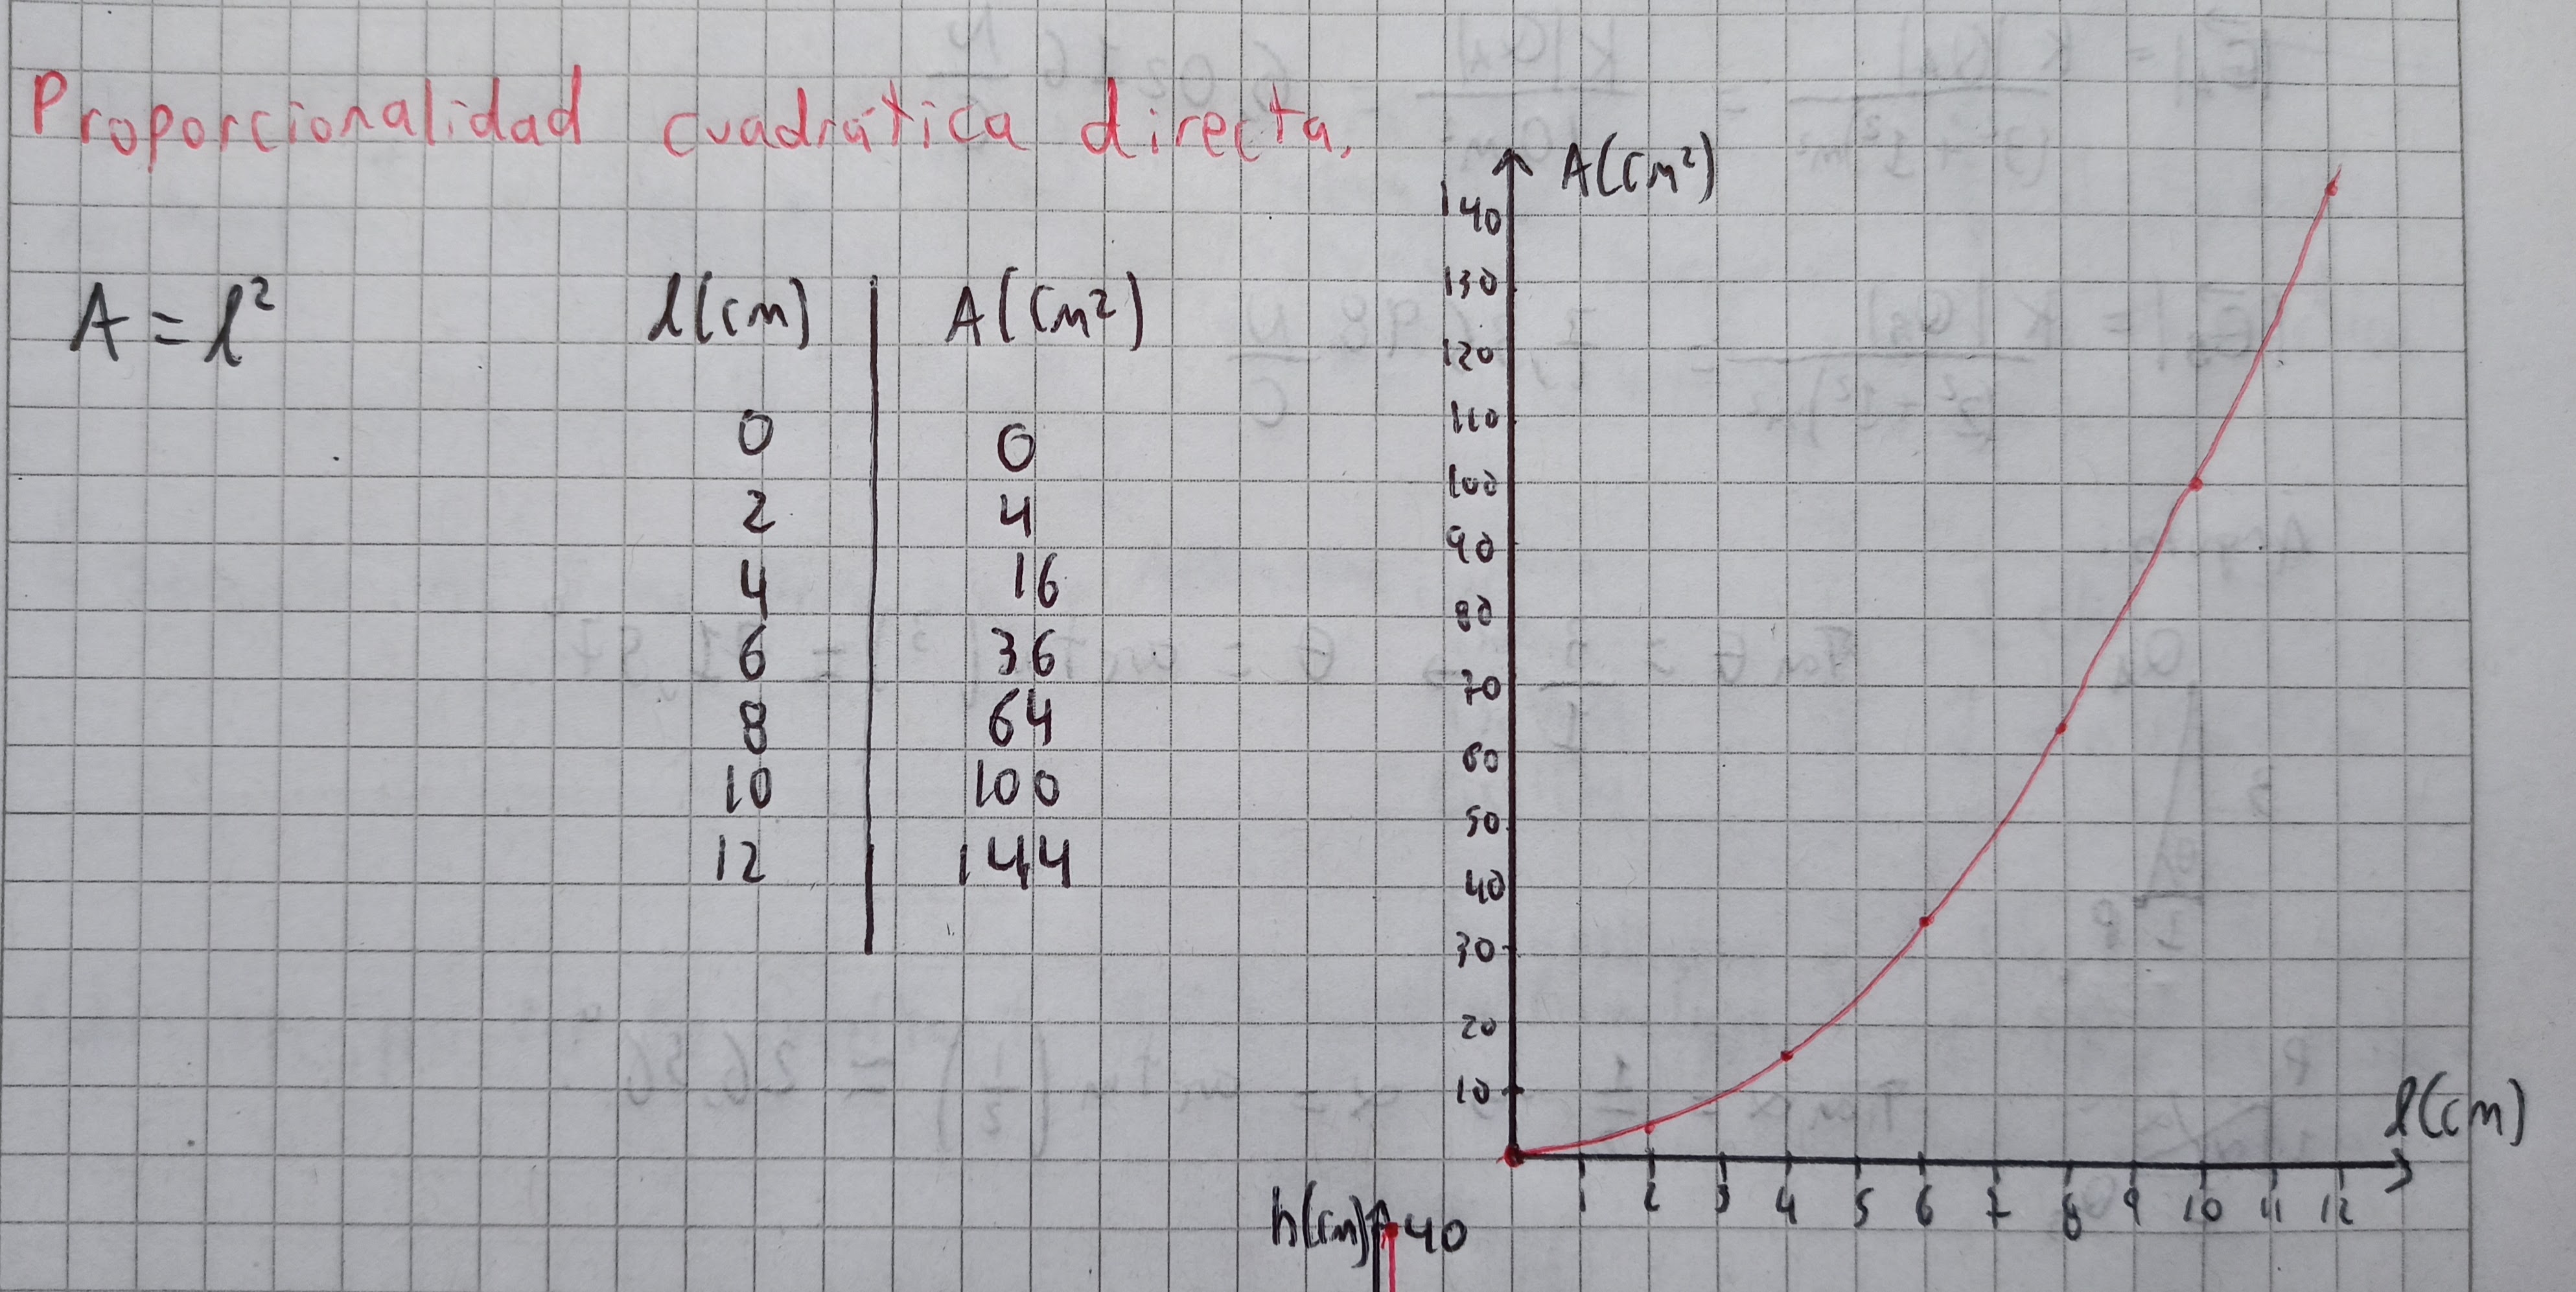 Proporcionalidad cuadrática directa.
A = l²
l(cm) A(cm²)
0 0
2 4
4 16
6 36
8 64
10 100
12 144
A(cm²)
140
130
120
110
100
90
80
70
60
50
40
30
20
10
l(cm)
1 2 3 4 5 6 7 8 9 10 11 12
h(cm) 40